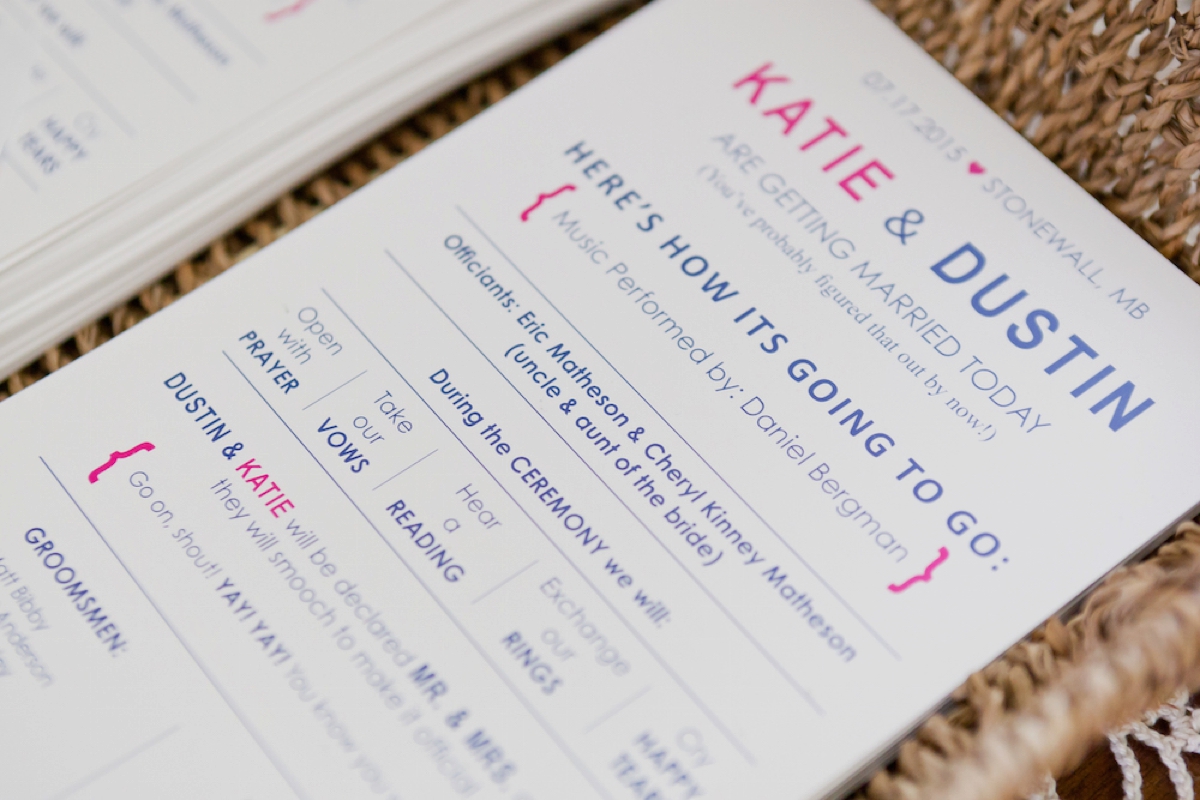 07.17.2015 ♥ STONEWALL, MB
KATIE & DUSTIN
ARE GETTING MARRIED TODAY
(You've probably figured that out by now!)
HERE'S HOW ITS GOING TO GO:
{ Music Performed by: Daniel Bergman }
Officiants: Eric Matheson & Cheryl Kinney Matheson
(uncle & aunt of the bride)
During the CEREMONY we will:
Open with PRAYER
Take our VOWS
Hear a READING
Exchange our RINGS
Cry HAPPY TEARS
DUSTIN & KATIE will be declared MR. & MRS.
they will smooch to make it official
{ Go on, shout! YAY! YAY! You know you
GROOMSMEN:
Bibby
Anderson
Matheson
}
Cry
HAPPY
TEARS